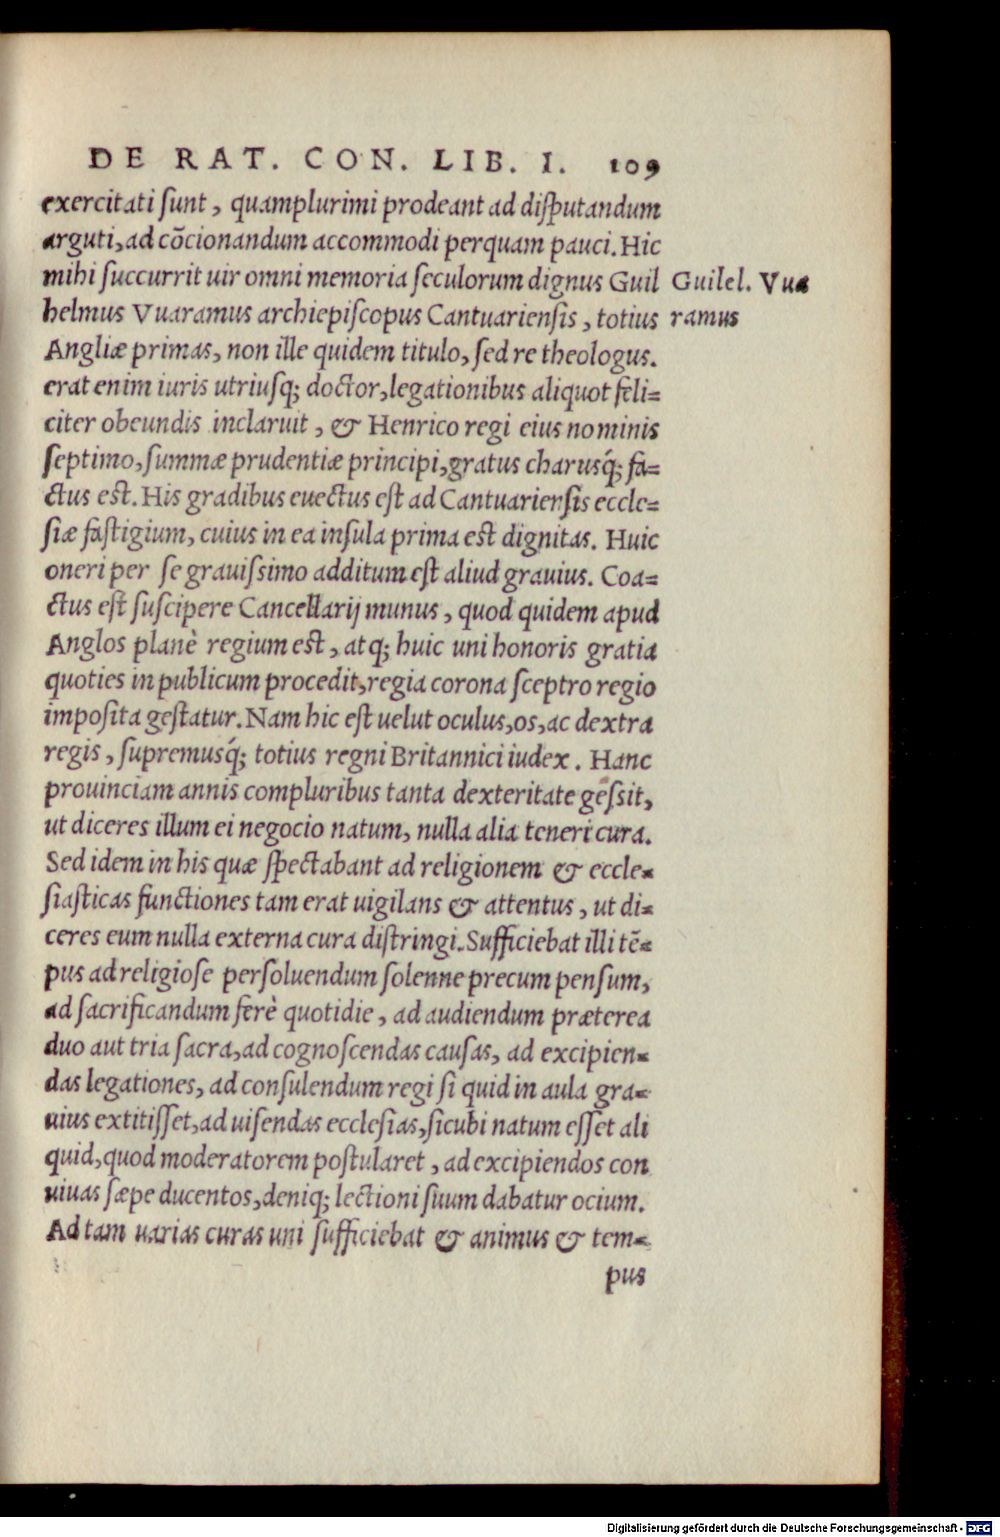 DE RAT. CON. LIB. I. 109
exercitati ſunt, quamplurimi prodeant ad diſputandum
arguti, ad cõcionandum accommodi perquam pauci. Hic
mihi ſuccurrit uir omni memoria ſeculorum dignus Guil
Guilel. Vua
helmus Vuaramus archiepiſcopus Cantuarienſis, totius
ramus
Angliæ primas, non ille quidem titulo, ſed re theologus.
erat enim iuris utriuſq; doctor, legationibus aliquot feli=
citer obeundis inclaruit, & Henrico regi eius nominis
ſeptimo, ſummæ prudentiæ principi, gratus charusq́; fa=
ctus est. His gradibus euectus eſt ad Cantuarienſis eccle=
ſiæ faſtigium, cuius in ea inſula prima est dignitas. Huic
oneri per ſe grauiſsimo additum eſt aliud grauius. Coa=
ctus eſt ſuſcipere Cancellarij munus, quod quidem apud
Anglos planè regium est, atq; huic uni honoris gratia
quoties in publicum procedit, regia corona ſceptro regio
impoſita geſtatur. Nam hic eſt uelut oculus, os, ac dextra
regis, ſupremusq́; totius regni Britannici iudex. Hanc
prouinciam annis compluribus tanta dexteritate geſsit,
ut diceres illum ei negocio natum, nulla alia teneri cura.
Sed idem in his quæ ſpectabant ad religionem & eccle=
ſiaſticas functiones tam erat uigilans & attentus, ut di=
ceres eum nulla externa cura diſtringi. Sufficiebat illi tẽ=
pus ad religioſe perſoluendum ſolenne precum penſum,
ad ſacrificandum ferè quotidie, ad audiendum præterea
duo aut tria ſacra, ad cognoſcendas cauſas, ad excipien=
das legationes, ad conſulendum regi ſi quid in aula gra=
uius extitiſſet, ad uiſendas eccleſias, ſicubi natum eſſet ali
quid, quod moderatorem poſtularet, ad excipiendos con
uiuas ſæpe ducentos, deniq; lectioni ſuum dabatur ocium.
Ad tam uarias curas uni ſufficiebat & animus & tem=
pus
Digitalisierung gefördert durch die Deutsche Forschungsgemeinschaft - DFG